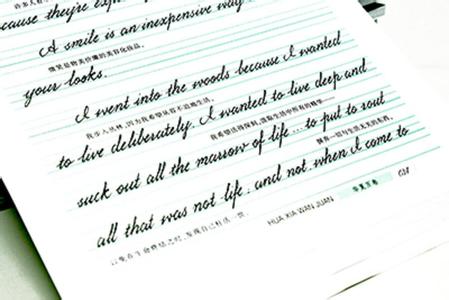 cause they're exp
A smile is an inexpensive way
微笑是物美价廉的美容化妆品。
your looks.
I went into the woods because I wanted
我步入丛林,因为我希望从容不迫地生活,
to live deliberately. I wanted to live deep and
我希望活得深刻,汲取生活中所有的精华
suck out all the marrow of life ... to put to rout
摒弃一切与生活无关的东西,
all that was not life ; and not, when I come to
以免在生命终结之时,发现自己
HUA XIA WAN JUAN 华夏万卷 CM